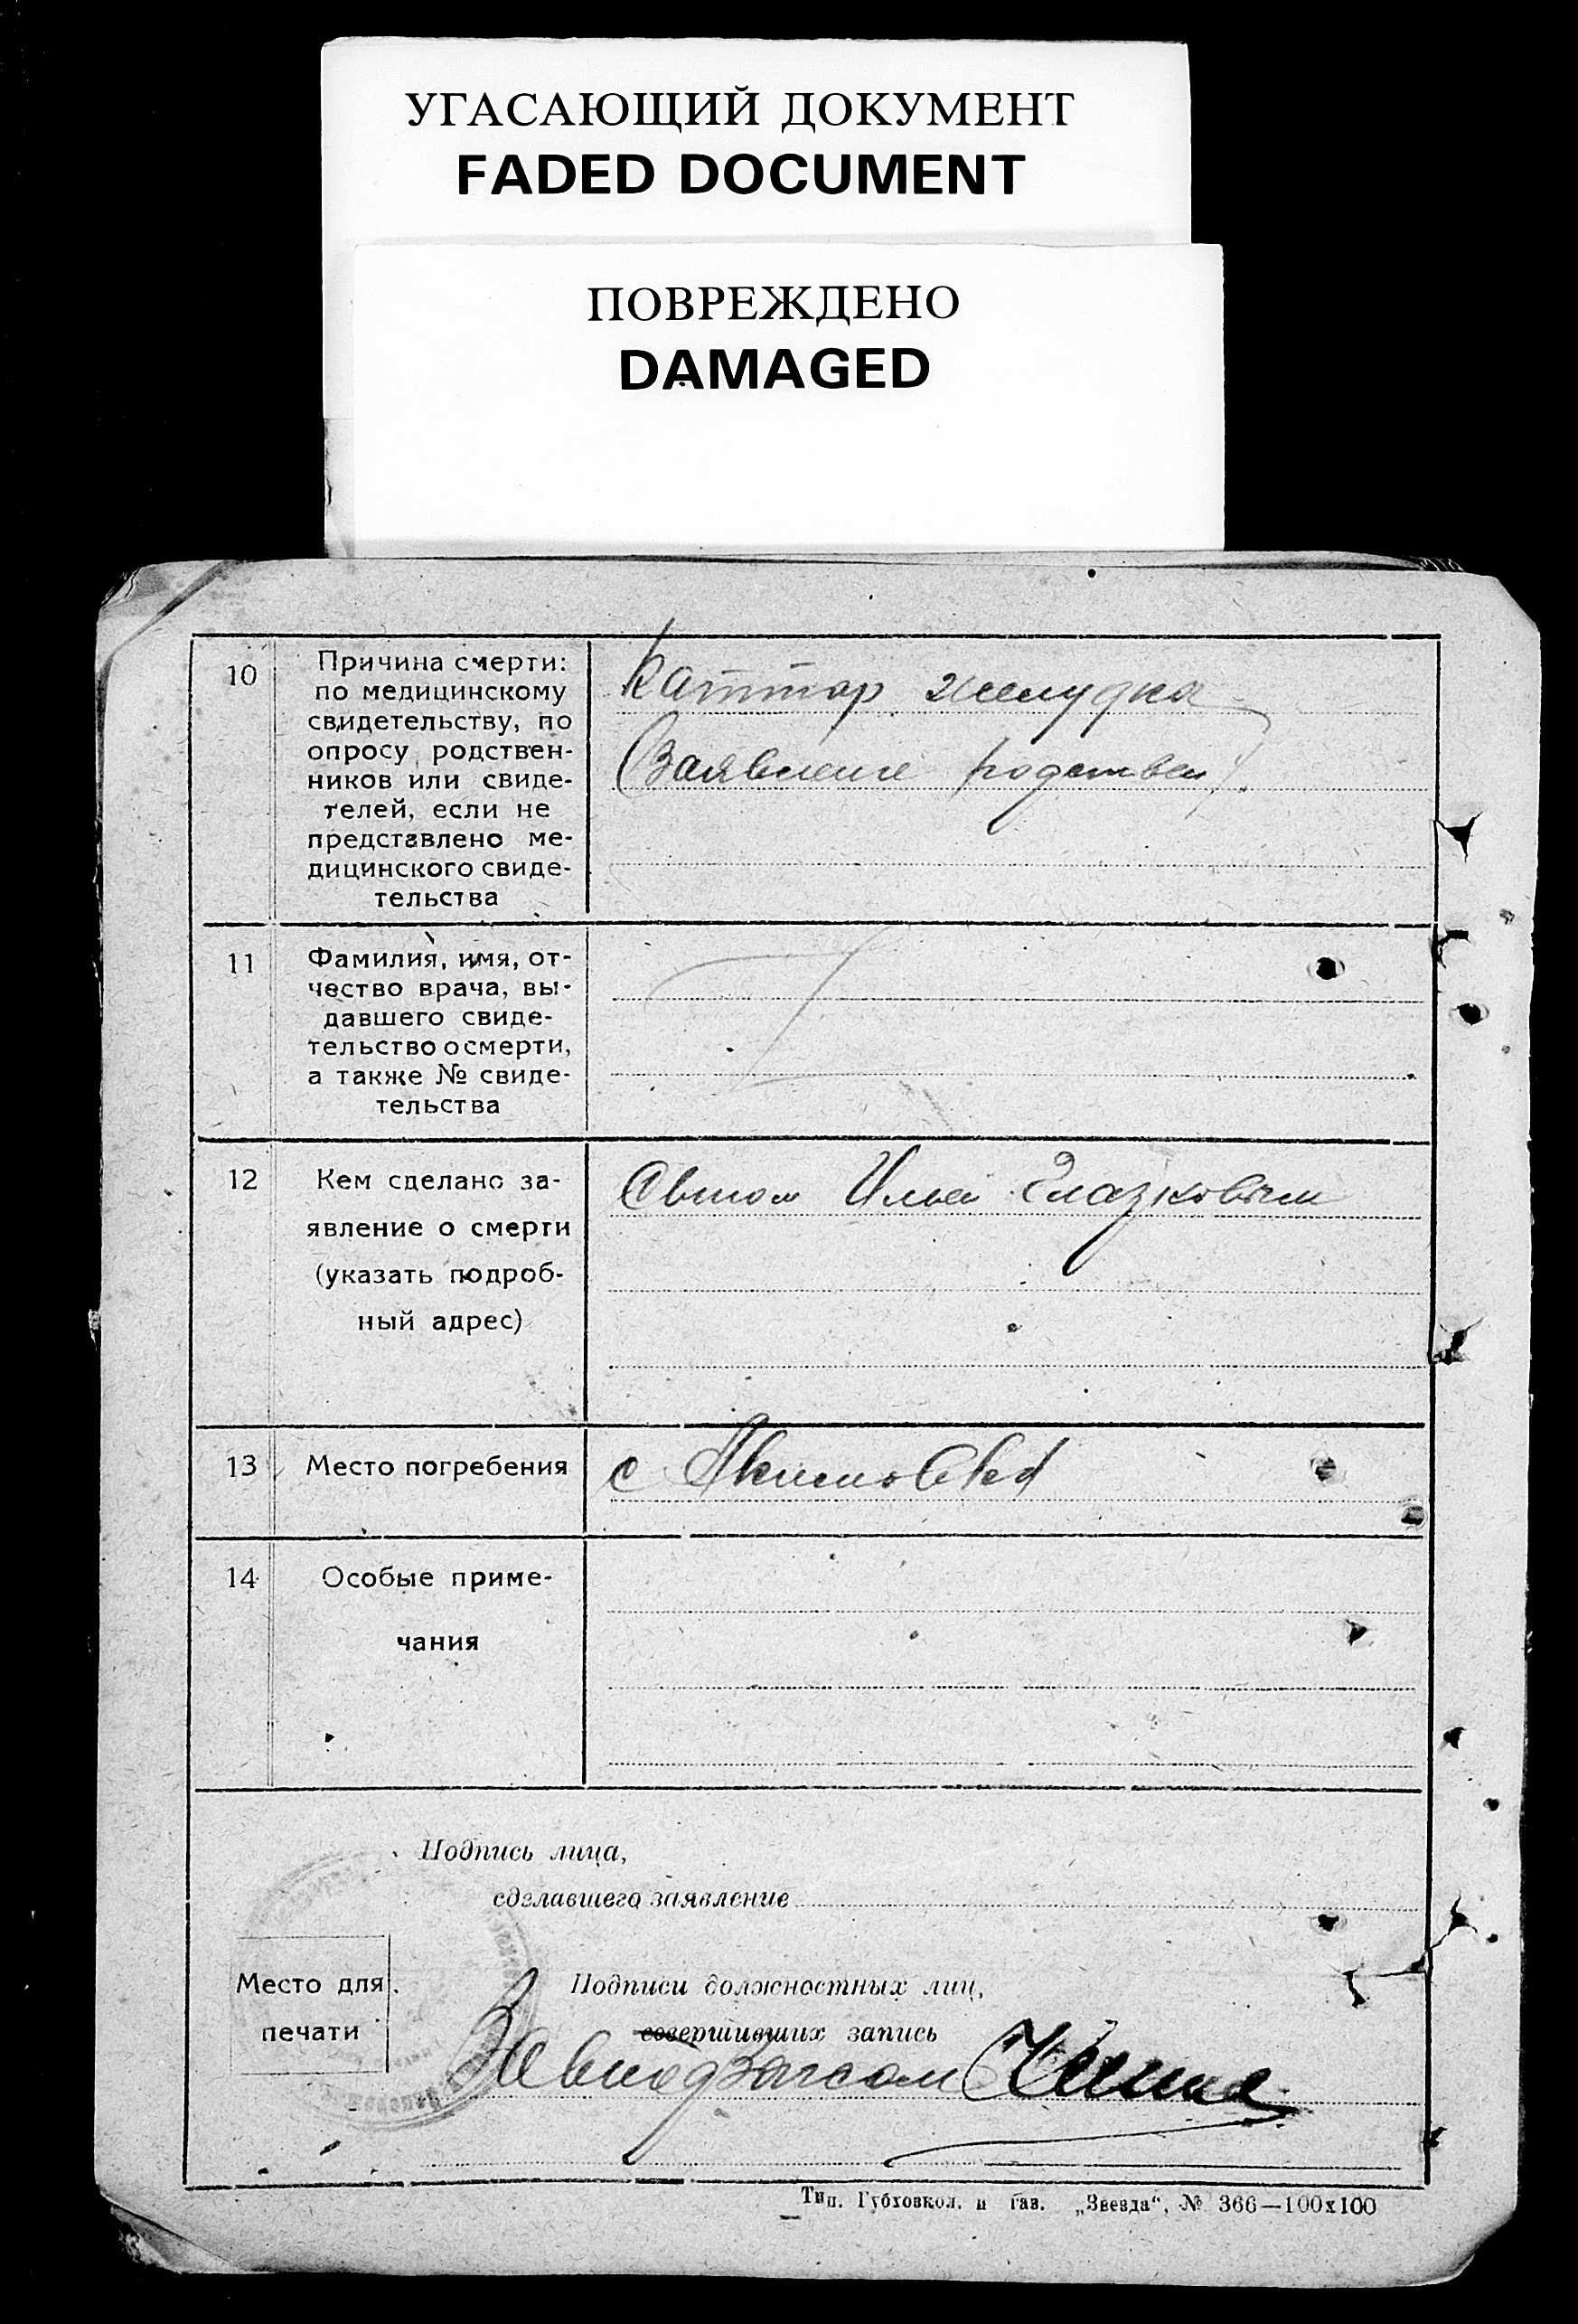 УГАСАЮЩИЙ ДОКУМЕНТ
FADED DOCUMENT
ПОВРЕЖДЕНО
DAMAGED
10
Причина смерти:
по медицинскому
свидетельству, по
опросу родствен-
ников или свиде-
телей, если не
представлено ме-
дицинского свиде-
тельства
Каттар желудка
(Заявление родствен)
11
Фамилия, имя, от-
чество врача, вы-
давшего свиде-
тельство о смерти,
а также № свиде-
тельства
12
Кем сделано за-
явление о смерти
(указать подроб-
ный адрес)
Сыном Ильей Глазковым
13
Место погребения
с Акимовка
14
Особые приме-
чания
Подпись лица,
сделавшего заявление
Место для
печати
Подписи должностных лиц,
совершивших запись
Завподзагсом
Тип. Губховкол. и газ. „Звезда“, № 366—100х100